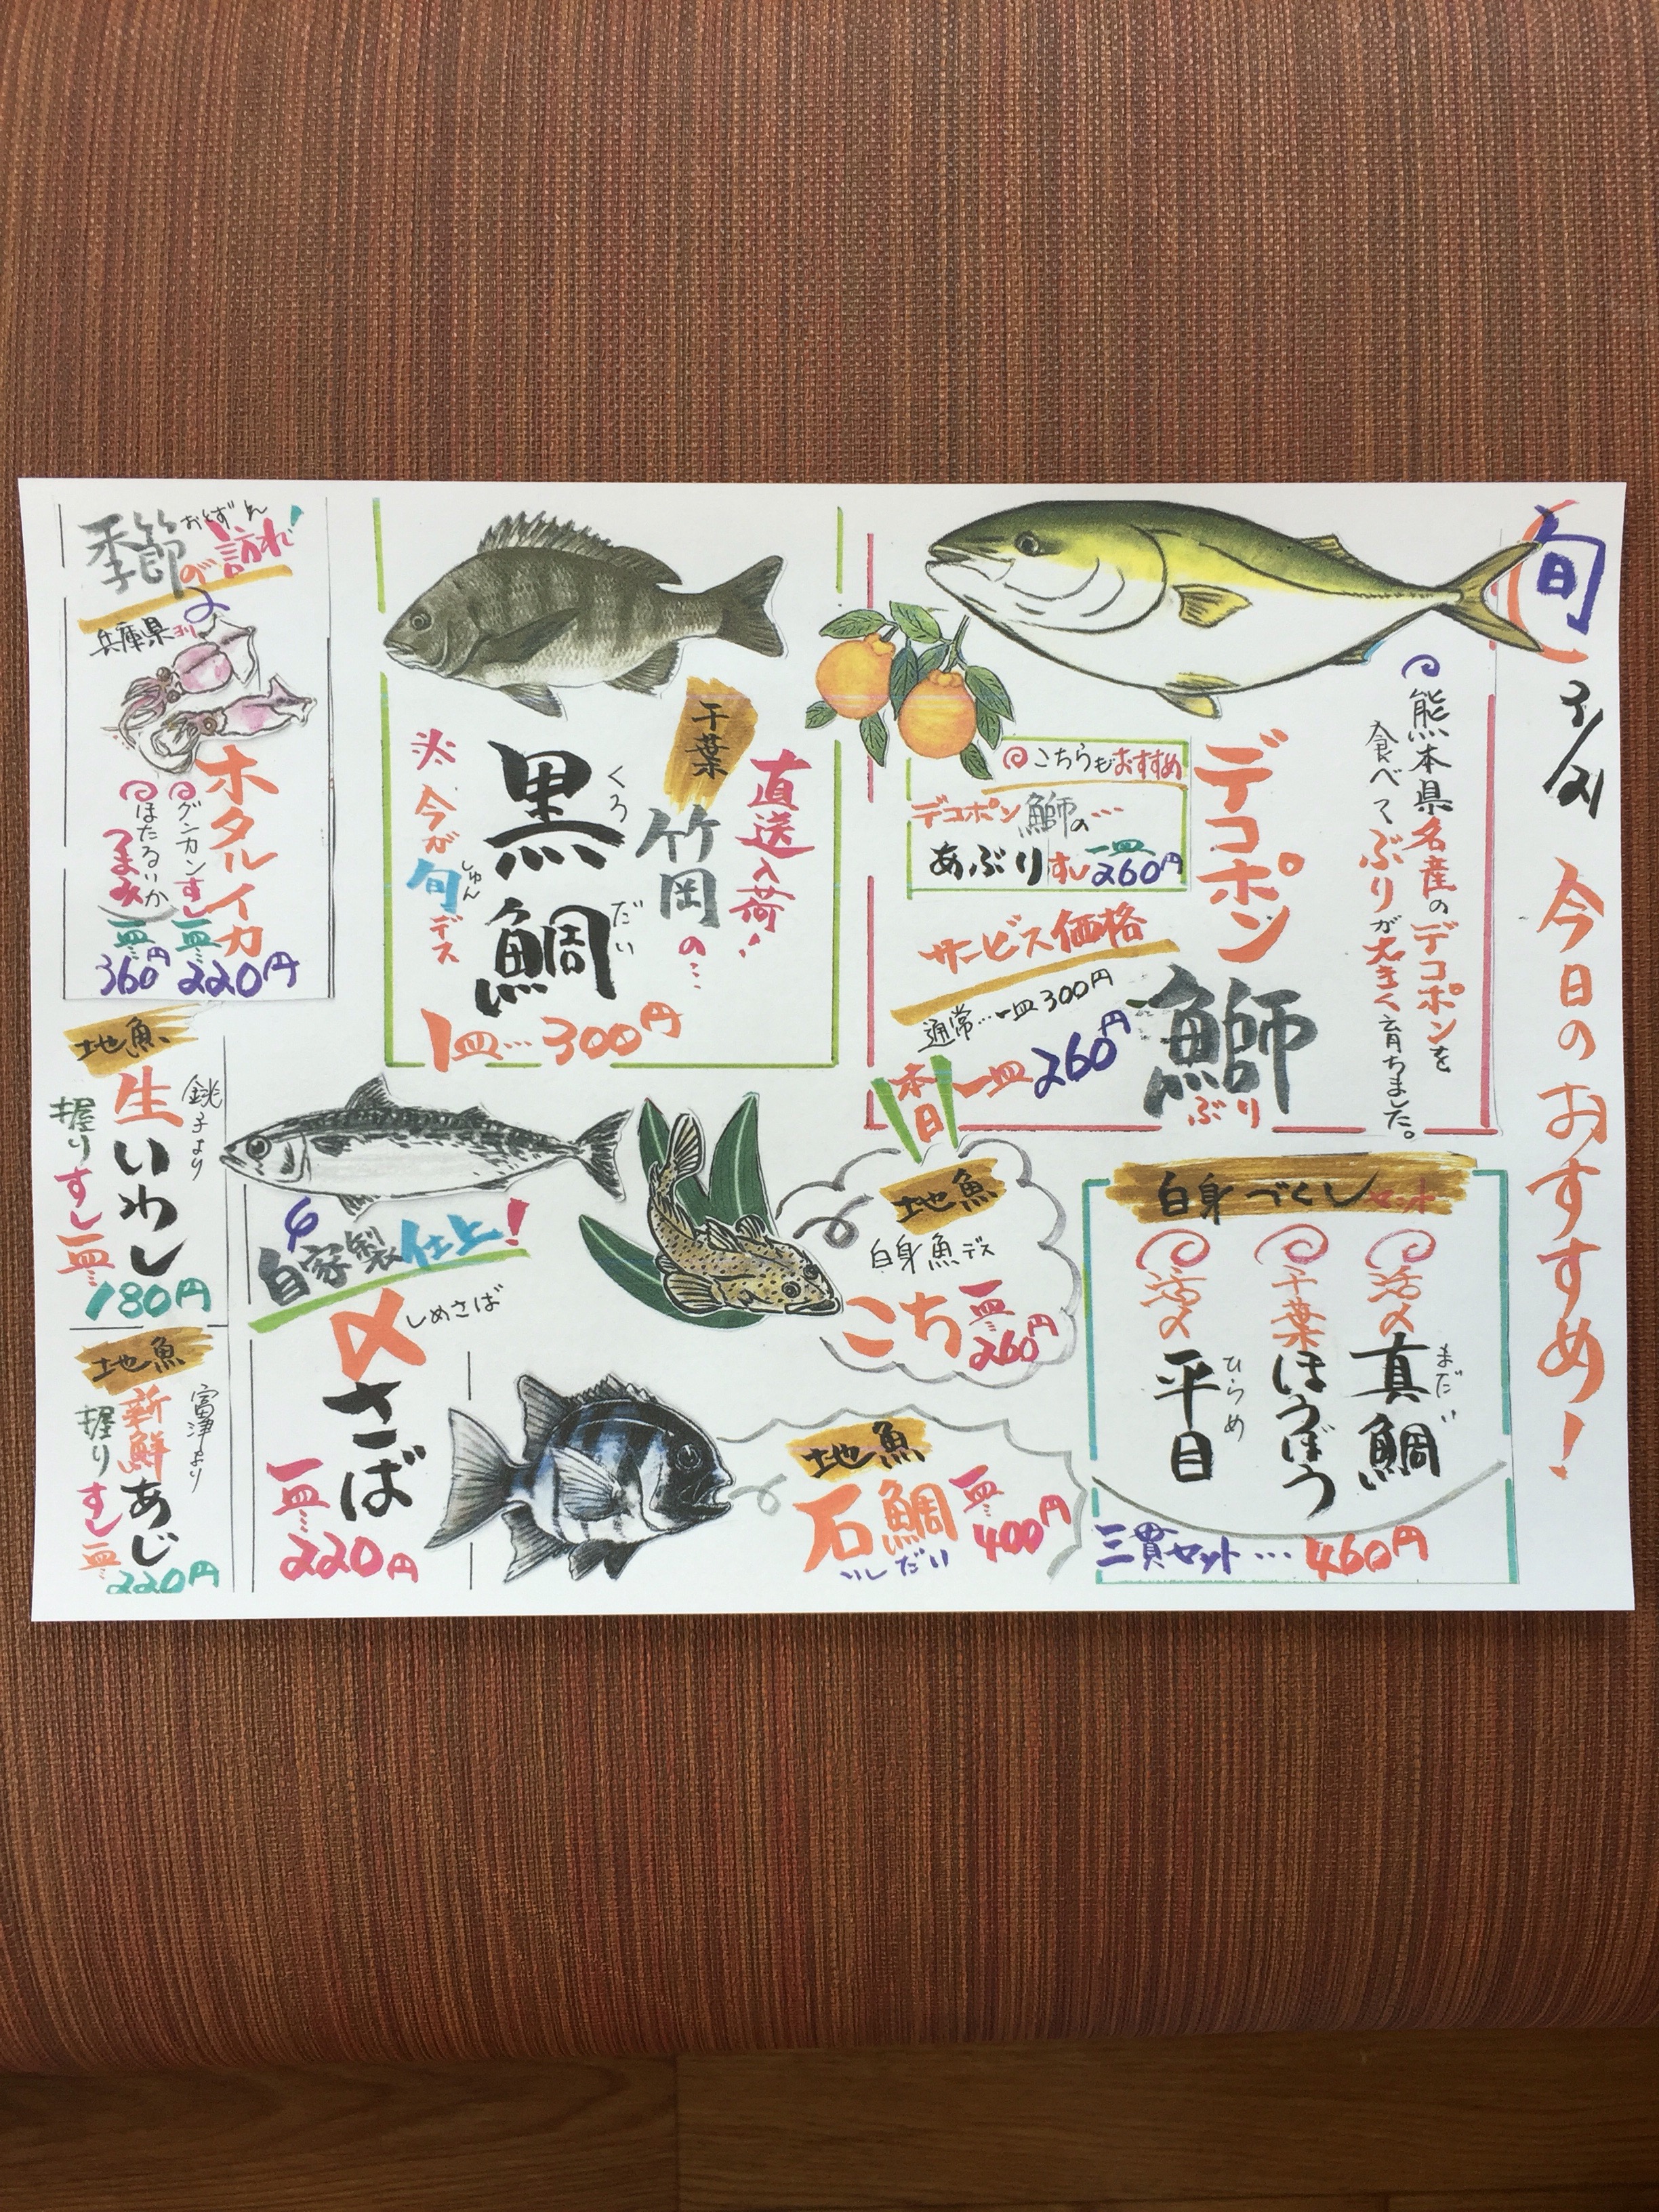 旬
今日のおすすめ!
熊本県名産のデコポンを
食べてぶりが大きく育ちました。
デコポン
鰤
ぶり
こちらもおすすめ
デコポン鰤の…
あぶりすし一皿260円
サービス価格
通常…一皿300円
本日一皿260円
直送入荷!
千葉
竹岡の…
黒鯛
くろだい
今が旬デス
しゅん
1皿…300円
季節の訪れ!
おとずれ
兵庫県ヨリ
ホタルイカ
グンカンすし一皿…220円
ほたるいかつまみ一皿…360円
白身づくしセット
活〆真鯛
まだい
千葉ほうぼう
活〆平目
ひらめ
三貫セット…460円
地魚
白身魚デス
こち一皿…260円
地魚
石鯛一皿…400円
いしだい
自家製仕上!
〆さば
しめさば
一皿…220円
地魚
銚子より
生いわし
握りすし一皿…180円
地魚
富津より
新鮮あじ
握りすし一皿…220円